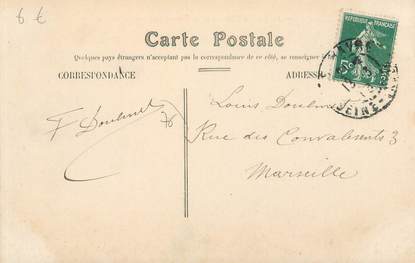 6 €
Carte Postale
Quelques pays étrangers n'acceptant pas la correspondance de ce côté, se renseigner
CORRESPONDANCE
ADRESSE
REPUBLIQUE FRANÇAISE
5c
HAVRE
SEINE
F
76
Louis
Rue des Convalesents 3
Marseille